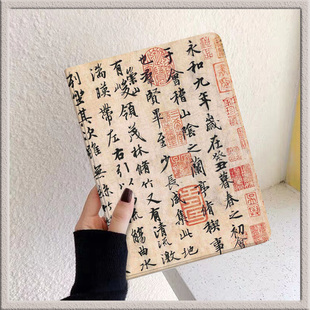 永和九年歲在癸丑暮春之初會
于會稽山陰之蘭亭脩禊事
也羣賢畢至少長咸集此地
有崇山峻領茂林脩竹又有清流激
湍暎帶左右引以流觴曲水
列坐其次雖無絲